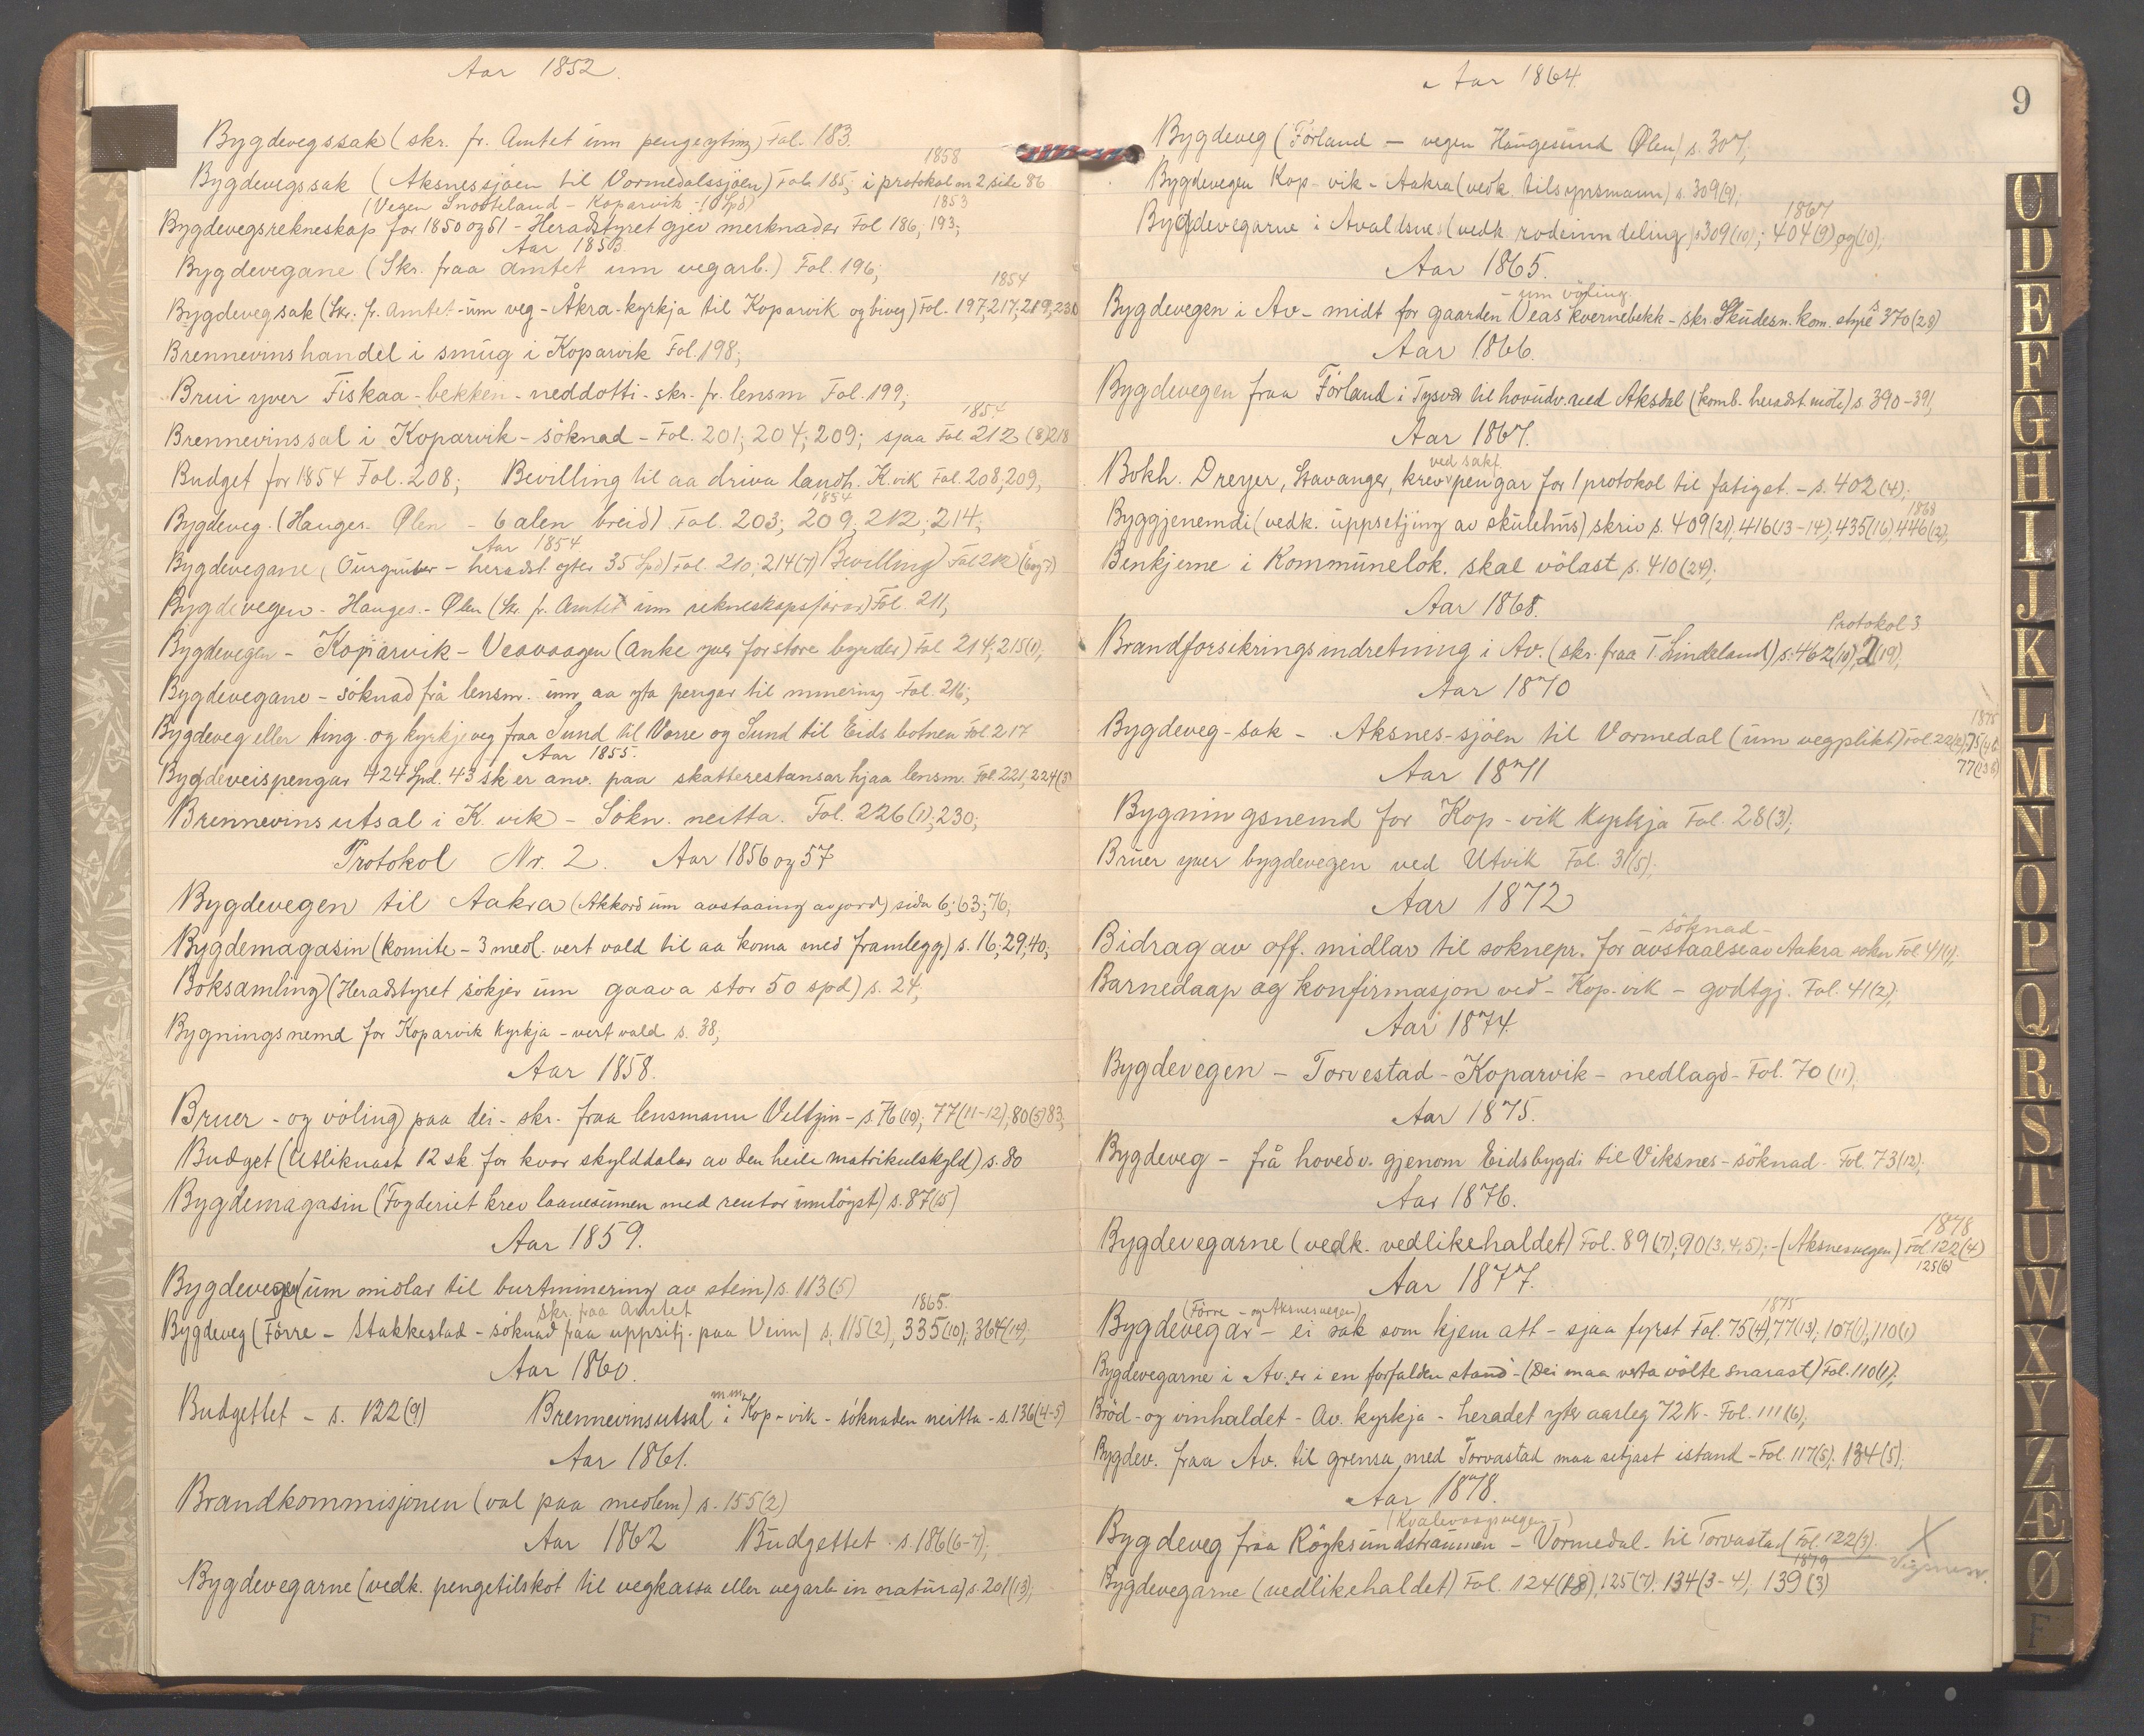 Aar 1852.
Bygdevegssak (skr. fr. Amtet um pengeyting) Fol. 183.
1858
Bygdevegssak (Aksnessjøen til Vormedalssjøen) Fol. 185, i protokol nr 2 side 86
(Vegen Snørteland - Koparvik - 1853
Bygdevegsrekneskap for 1850 og 51 - Heradstyret gjev merknader Fol 186; 193;
Aar 1853
Bygdevegane (Skr. fraa amtet um vegarb.) Fol. 196;
1854
Bygdevegsak (Skr. fr. Amtet - um veg - Åkra-kyrkja til Koparvik og biveg) Fol. 197; 217; 219; 230
Brennevinshandel i smug i Koparvik Fol. 198;
Brui yver Fiskaa-bekken - neddotti - skr. fr. lensm Fol. 199;
1854
Brennevinssal i Koparvik - söknad - Fol. 201; 204; 209; sjaa Fol. 212 (8) 218
Budget for 1854 Fol. 208; Bevilling til aa driva landh. K.vik Fol. 208, 209,
1854
Bygdeveg. (Hauges. Ølen - 6 alen breid). Fol. 203; 209; 212; 214;
Aar 1854
Bygdevegane, - heradst. yter 35 Spd) Fol. 210; 214(7) Bevilling) Fol 212 (6 og 7)
Bygdevegen - Hauges. - Ølen (Skr. fr. Amtet um rekneskapsförar) Fol. 211,
Bygdevegen - Koparvik - Veavaagen (anke yver for store byrder) Fol 214; 215(1);
Bygdevegane - söknad frå lensm. um aa yta pengar til minering - Fol. 216;
Bygdeveg eller ting- og kyrkjeveg fraa Sund til Vorre og Sund til Eids botnen Fol 217
Aar 1855.
Bygdeveispengar 424 Spd. 43 sk er anv. paa skatterestansar hjaa lensm. Fol. 221, 224(3)
Brennevinsutsal i K.vik - Sökn. neitta. Fol. 226(1); 230;
Protokol Nr. 2. Aar 1856 og 57
Bygdevegen til Aakra (Akkord um avstaaing av jord) sida 6; 63; 76;
Bygdemagasin (komite - 3 medl. vert vald til aa koma med framlegg) s. 16; 29; 40;
Boksamling (Heradstyret sökjer um gaava stor 50 spd) s. 24;
Bygningsnemd for Koparvik kyrkja - vert vald s. 38;
Aar 1858.
Bruer - og völing paa dei - skr. fraa lensmann Veltzin - s. 76(10); 77(11-12); 80(5) 83;
Budget (Utliknast 12 sk. for kvar skylddalar av den heile matrikulskyld) s. 80
Bygdemagasin (Fogderiet krev laanesumen med rentor innlöyst) s. 87(15)
Aar 1859.
Bygdevegen (um midlar til burtminering av stein) s. 113(5)
skr. fraa Amtet 1865.
Bygdeveg (Förre - Stakkestad - söknad fraa uppsitj. paa Veim) s. 115(2), 335(10); 364(14);
Aar 1860.
Budgettet - s. 122(9) Brennevinsutsal m.m. i Kop-vik - söknaden neitta - s. 136(4-5)
Aar 1861.
Brandkommisjonen (val paa medlem) s. 155(2)
Aar 1862 Budgettet s. 186(6-7);
Bygdevegarne (vedk. pengetilskot til vegkassa eller vegarb in natura) s. 201(13);
Aar 1864.
9
Bygdeveg (Förland - vegen Haugesund Ølen) s. 307;
Bygdevegen Kop-vik - Aakra (vedk. tilsynsmann) s. 309(9);
1867
Bygdevegarne i Avaldsnes (vedk rodeinndeling) s 309(10); 404(9) og (10);
Aar 1865.
- um völing
Bygdevegen i Av - midt for gaarden Veas kvernebekk - skr. Skudesn. kom. styre s 370(28)
Aar 1866.
Bygdevegen fraa Förland i Tysvær til hovudv. ved Aksdal (komb. heradst. möte) s. 390-391,
Aar 1867.
ved sakf.
Bokh. Dreyer, Stavanger, krev pengar for 1 protokol til fatigst. - s. 402(4);
1868
Byggjenemdi (vedk. uppsetjing av skulehus) skriv s. 409(21); 416(13-14); 435(16) 446(12);
Benkjerne i Kommunelok. skal völast s. 410(24);
Aar 1868.
Protokol 3
Brandforsikringsindretning i Av. (skr. fraa T. Lindeland) s. 462(10); 2(19),
Aar 1870
1875
Bygdeveg-sak - Aksnes-sjöen til Vormedal (um vegplikt) Fol. 22(2); 75(4)
77(13)
Aar 1871
Bygningsnemd for Kop-vik Kyrkja Fol. 28(3);
Bruer yver bygdevegen ved Utvik Fol. 31(5);
Aar 1872
- söknad -
Bidrag av off. midlar til soknepr. for avstaalse av Aakra sokn Fol 41(1);
Barnedaap og konfirmasjon ved - Kop-vik - godtgj. Fol. 41(2);
Aar 1874.
Bygdevegen - Torvestad - Koparvik - nedlagd - Fol. 70(11).
Aar 1875.
Bygdeveg - frå hovedv. gjenom Eidsbygdi til Viksnes - söknad - Fol. 73(12);
Aar 1876.
1878
Bygdevegarne (vedk. vedlikehaldet) Fol. 89(7); 90(3,4,5); - (Aksnesvegen) Fol. 122(4)
125(6)
Aar 1877.
(Förre - og Aksnesvegen) 1875
Bygdevegar - ei sak som kjem att - sjaa fyrst Fol. 75(4), 77(13); 107(1), 110(1)
Bygdevegarne i Av. er i en forfalden stand - (Dei maa verta völte snarast) Fol. 110(1);
Bröd- og vinhaldet - Av. kyrkja - heradet yter aarleg 72 K - Fol. 111(6);
Bygdev. fraa Av. til grensa med Torvastad maa setjast istand - Fol. 117(5); 134(5);
Aar 1878.
(Kvalevaagvegen - )
Bygdeveg fraa Röyksundstraumen - Vormedal - til Torvastad (Fol. 122(3). X
1879
Bygdevegarne (vedlikehaldet) Fol. 124(18), 125(7); 134(3-4); 139(3)
C
D
E
F
G
H
I
J
K
L
M
N
O
P
Q
R
S
T
U
W
X
Y
Z
Æ
Ø